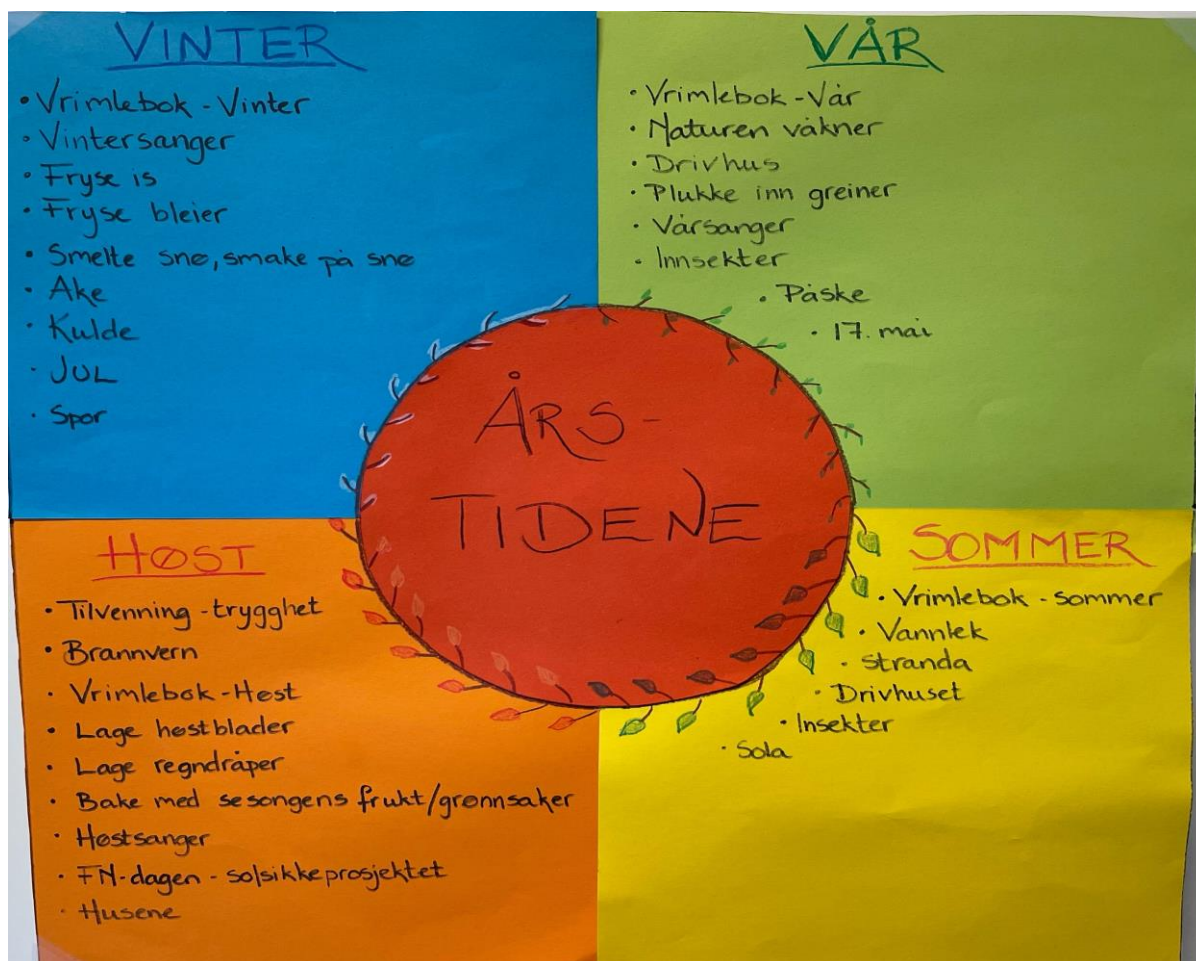 VINTER
• Vrimlebok - Vinter
• Vintersanger
• Fryse is
• Fryse bleier
• Smelte snø, smake på snø
• Ake
• Kulde
• JUL
• Spor
VÅR
• Vrimlebok - Vår
• Naturen våkner
• Drivhus
• Plukke inn greiner
• Vårsanger
• Innsekter
• Påske
• 17. mai
ÅRS-
TIDENE
HØST
• Tilvenning - trygghet
• Brannvern
• Vrimlebok - Høst
• Lage høstblader
• Lage regndråper
• Bake med sesongens frukt/grønnsaker
• Høstsanger
• FN-dagen - solsikkeprosjektet
• Husene
SOMMER
• Vrimlebok - sommer
• Vannlek
• Stranda
• Drivhuset
• Insekter
• Sola